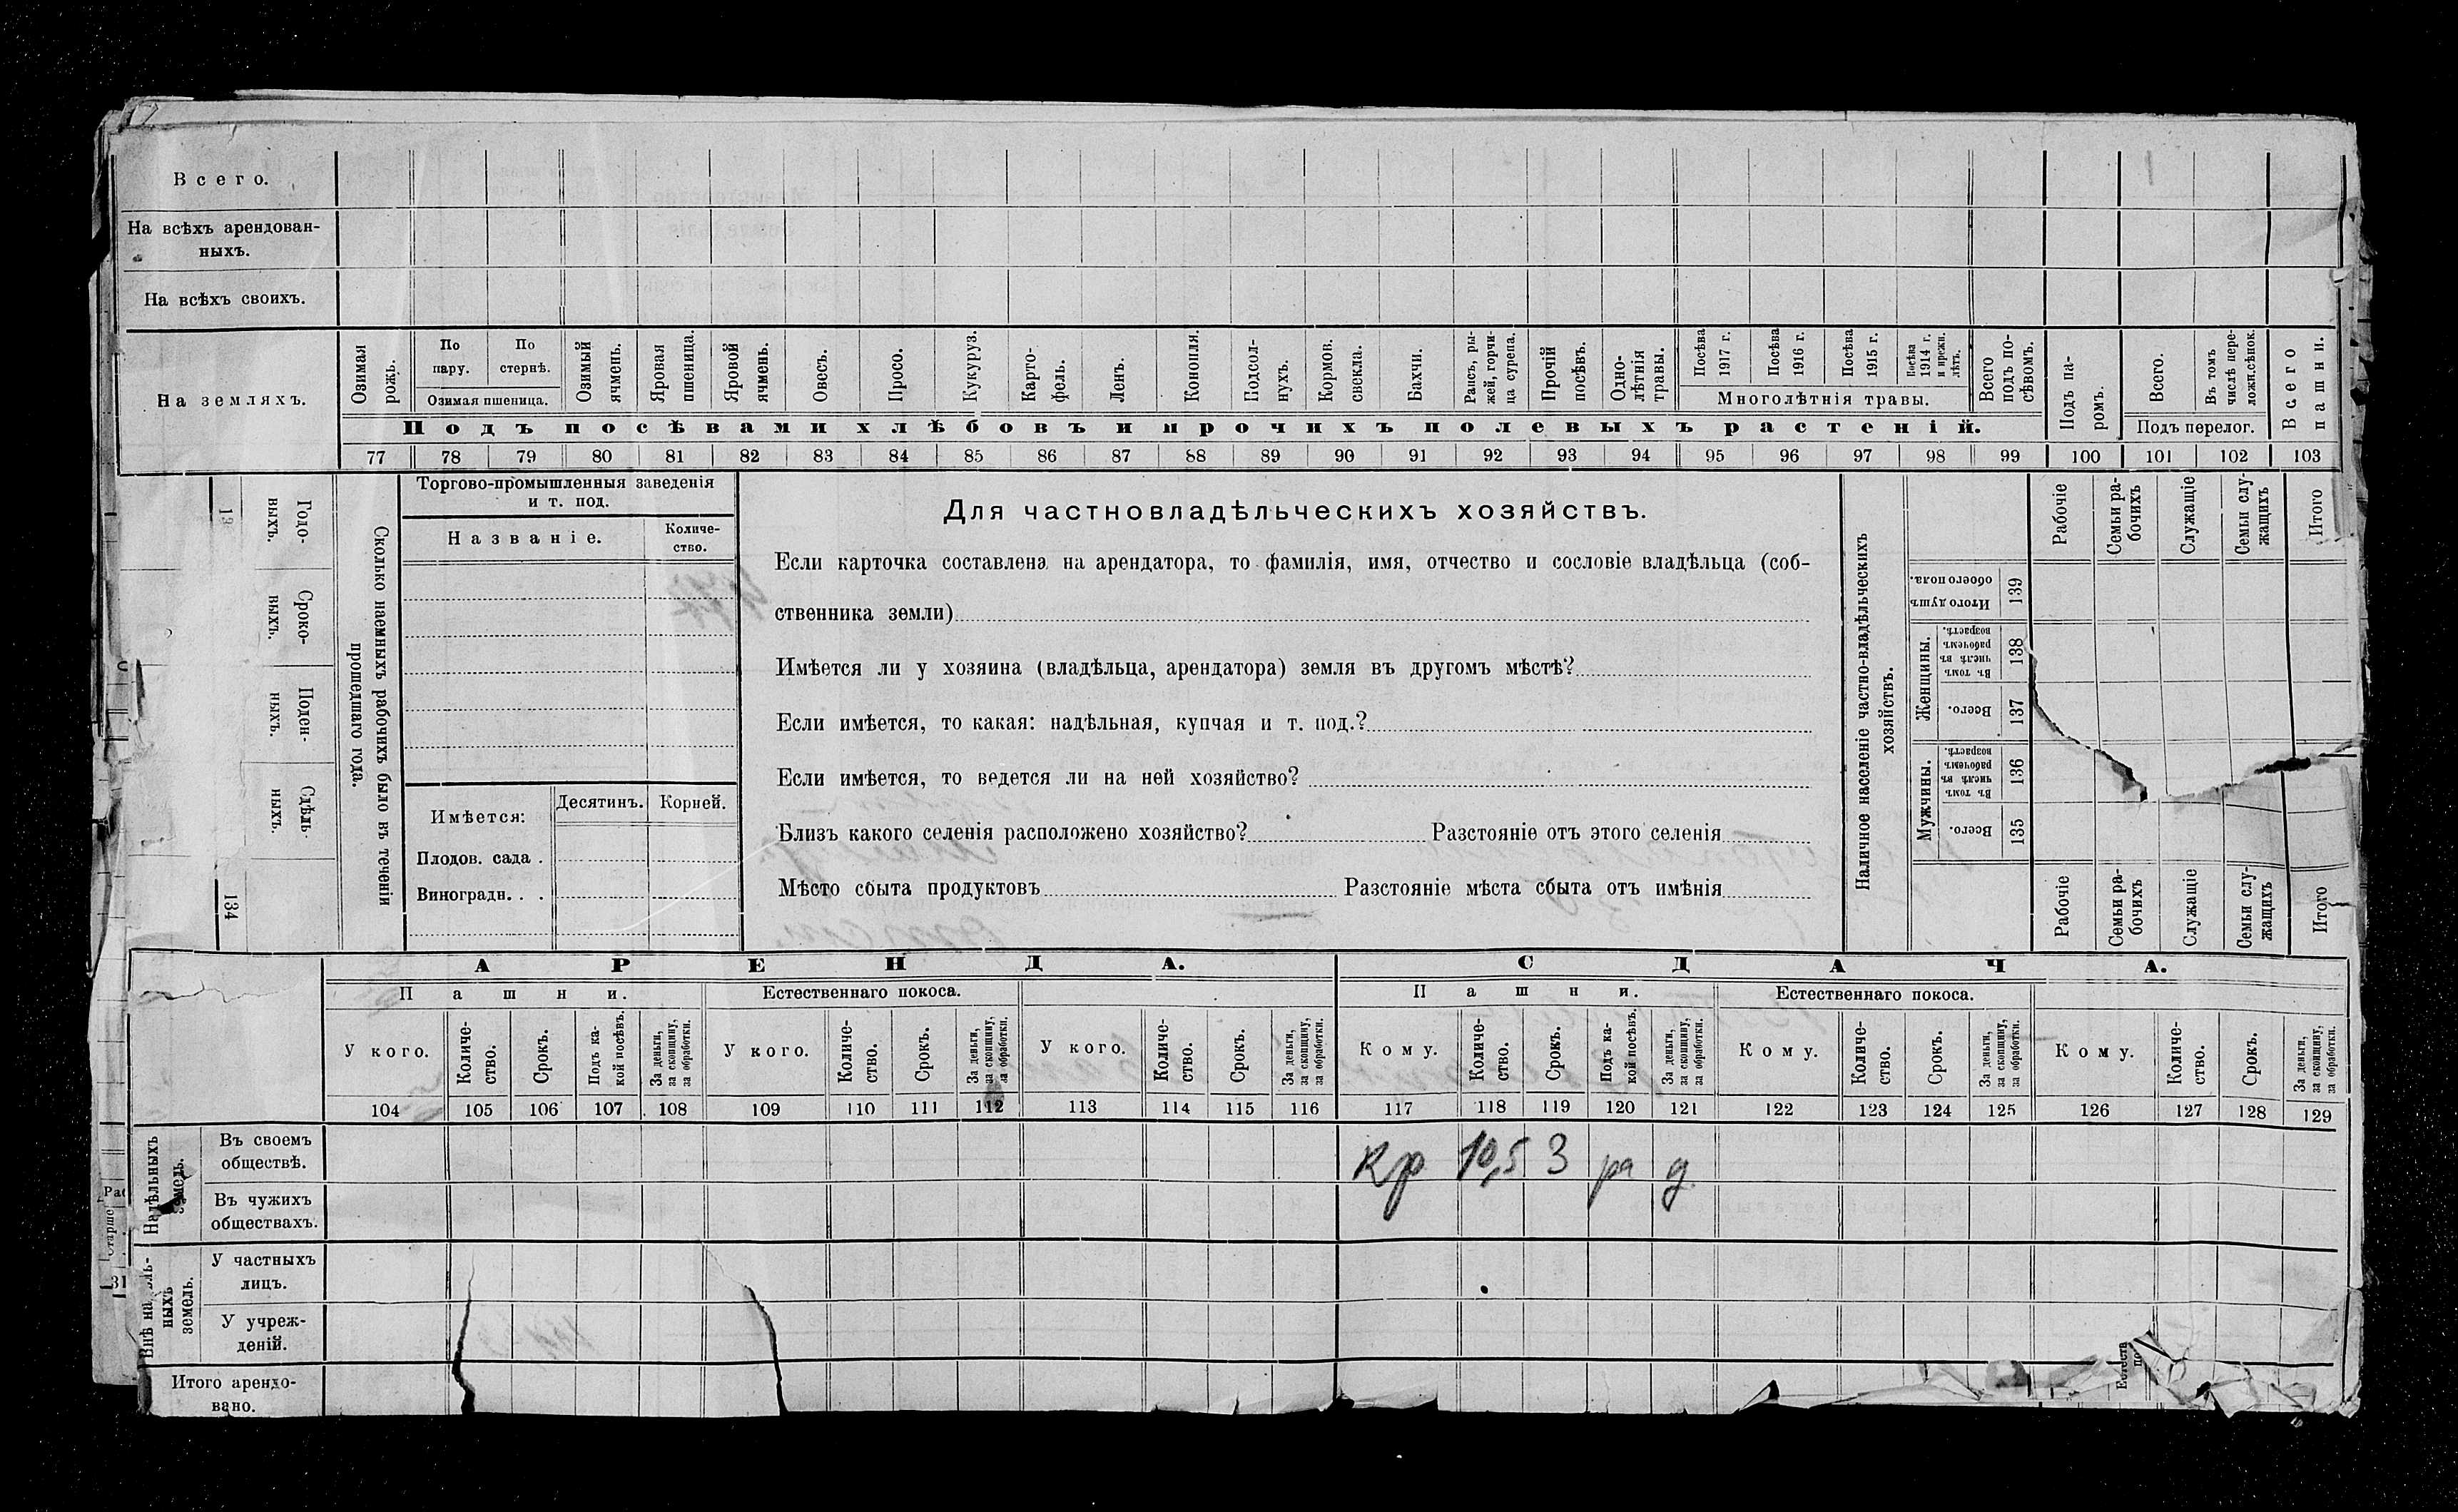 Всего.
На всѣхъ арендован-
ныхъ.
На всѣхъ своихъ.
На земляхъ.
Озимая рожь.
По пару.
По стернѣ.
Озимая пшеница.
Озимый ячмень.
Яровая пшеница.
Яровой ячмень.
Овесъ.
Просо.
Кукуруз.
Карто-
фель.
Ленъ.
Конопля.
Подсол-
нухъ.
Кормов.
свекла.
Бахчи.
Рапсъ, ры-
жей, горчи-
ца сурепа.
Прочій
посѣвъ.
Одно-
лѣтнія
травы.
Посѣва
1917 г.
Посѣва
1916 г.
Посѣва
1915 г.
Посѣва
1914 г.
и прежн.
лѣтъ.
Многолѣтнія травы.
Всего
подъ по-
сѣвомъ.
Подъ па-
ромъ.
Всего.
Въ томъ
числѣ пере-
ложн. сѣнок.
Подъ перелог.
Всего
пашни.
Подъ посѣвами хлѣбовъ и прочихъ полевыхъ растеній.
77 78 79 80 81 82 83 84 85 86 87 88 89 90 91 92 93 94 95 96 97 98 99 100 101 102 103
Годо-
выхъ.
Сроко-
выхъ.
Поден-
ныхъ.
Сдѣль-
ныхъ.
134
Сколько наемныхъ рабочихъ было въ теченіи
прошедшаго года.
Торгово-промышленныя заведенія
и т. под.
Названіе.
Количе-
ство.
Имѣется:
Десятинъ.
Корней.
Плодов. сада .
Виноградн. . .
Для частновладѣльческихъ хозяйствъ.
Если карточка составлена на арендатора, то фамилія, имя, отчество и сословіе владѣльца (соб-
ственника земли)
Имѣется ли у хозяина (владѣльца, арендатора) земля въ другомъ мѣстѣ?
Если имѣется, то какая: надѣльная, купчая и т. под.?
Если имѣется, то ведется ли на ней хозяйство?
Близъ какого селенія расположено хозяйство? Разстояніе отъ этого селенія
Мѣсто сбыта продуктовъ Разстояніе мѣста сбыта отъ имѣнія
Наличное населеніе частно-владѣльческихъ
хозяйствъ.
Рабочіе
Семьи ра-
бочихъ
Служащіе
Семьи слу-
жащихъ
Итого
Итого душъ
обоего пола.
139
Женщины.
Въ томъ
числѣ въ
рабочемъ
возрастѣ.
138
Всего.
137
Мужчины.
Въ томъ
числѣ въ
рабочемъ
возрастѣ.
136
Всего.
135
Рабочіе
Семьи ра-
бочихъ
Служащіе
Семьи слу-
жащихъ
Итого
АРЕНДА.
СДАЧА.
Пашни.
Естественнаго покоса.
Пашни.
Естественнаго покоса.
У кого.
Количе-
ство.
Срокъ.
Подъ ка-
кой посѣвъ.
За деньги,
за скопщину,
за обработки.
У кого.
Количе-
ство.
Срокъ.
За деньги,
за скопщину,
за обработки.
У кого.
Количе-
ство.
Срокъ.
За деньги,
за скопщину,
за обработки.
Кому.
Количе-
ство.
Срокъ.
Подъ ка-
кой посѣвъ.
За деньги,
за скопщину,
за обработки.
Кому.
Количе-
ство.
Срокъ.
За деньги,
за скопщину,
за обработки.
Кому.
Количе-
ство.
Срокъ.
За деньги,
за скопщину,
за обработки.
104 105 106 107 108 109 110 111 112 113 114 115 116 117 118 119 120 121 122 123 124 125 126 127 128 129
Надѣльныхъ
земель.
Въ своемъ
обществѣ.
Кр 10,5 3 ра д.
Въ чужихъ
обществахъ.
Внѣ на
ныхъ
земель.
У частныхъ
лицъ.
У учреж-
деній.
Итого арендо-
вано.